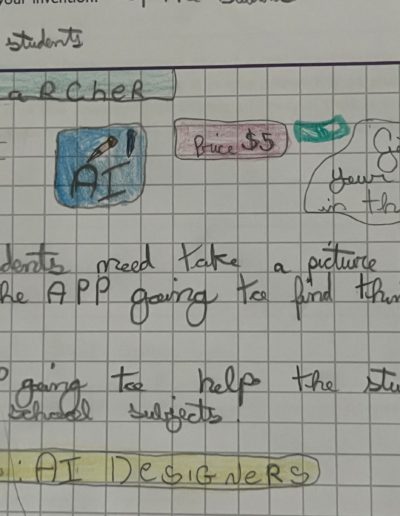 your invention.
students
aRCHeR
AI
Price $5
$
your
in th
dents need take a picture
he APP going to find
going to help the stu
school subjects!
: AI DeSIGNeRS